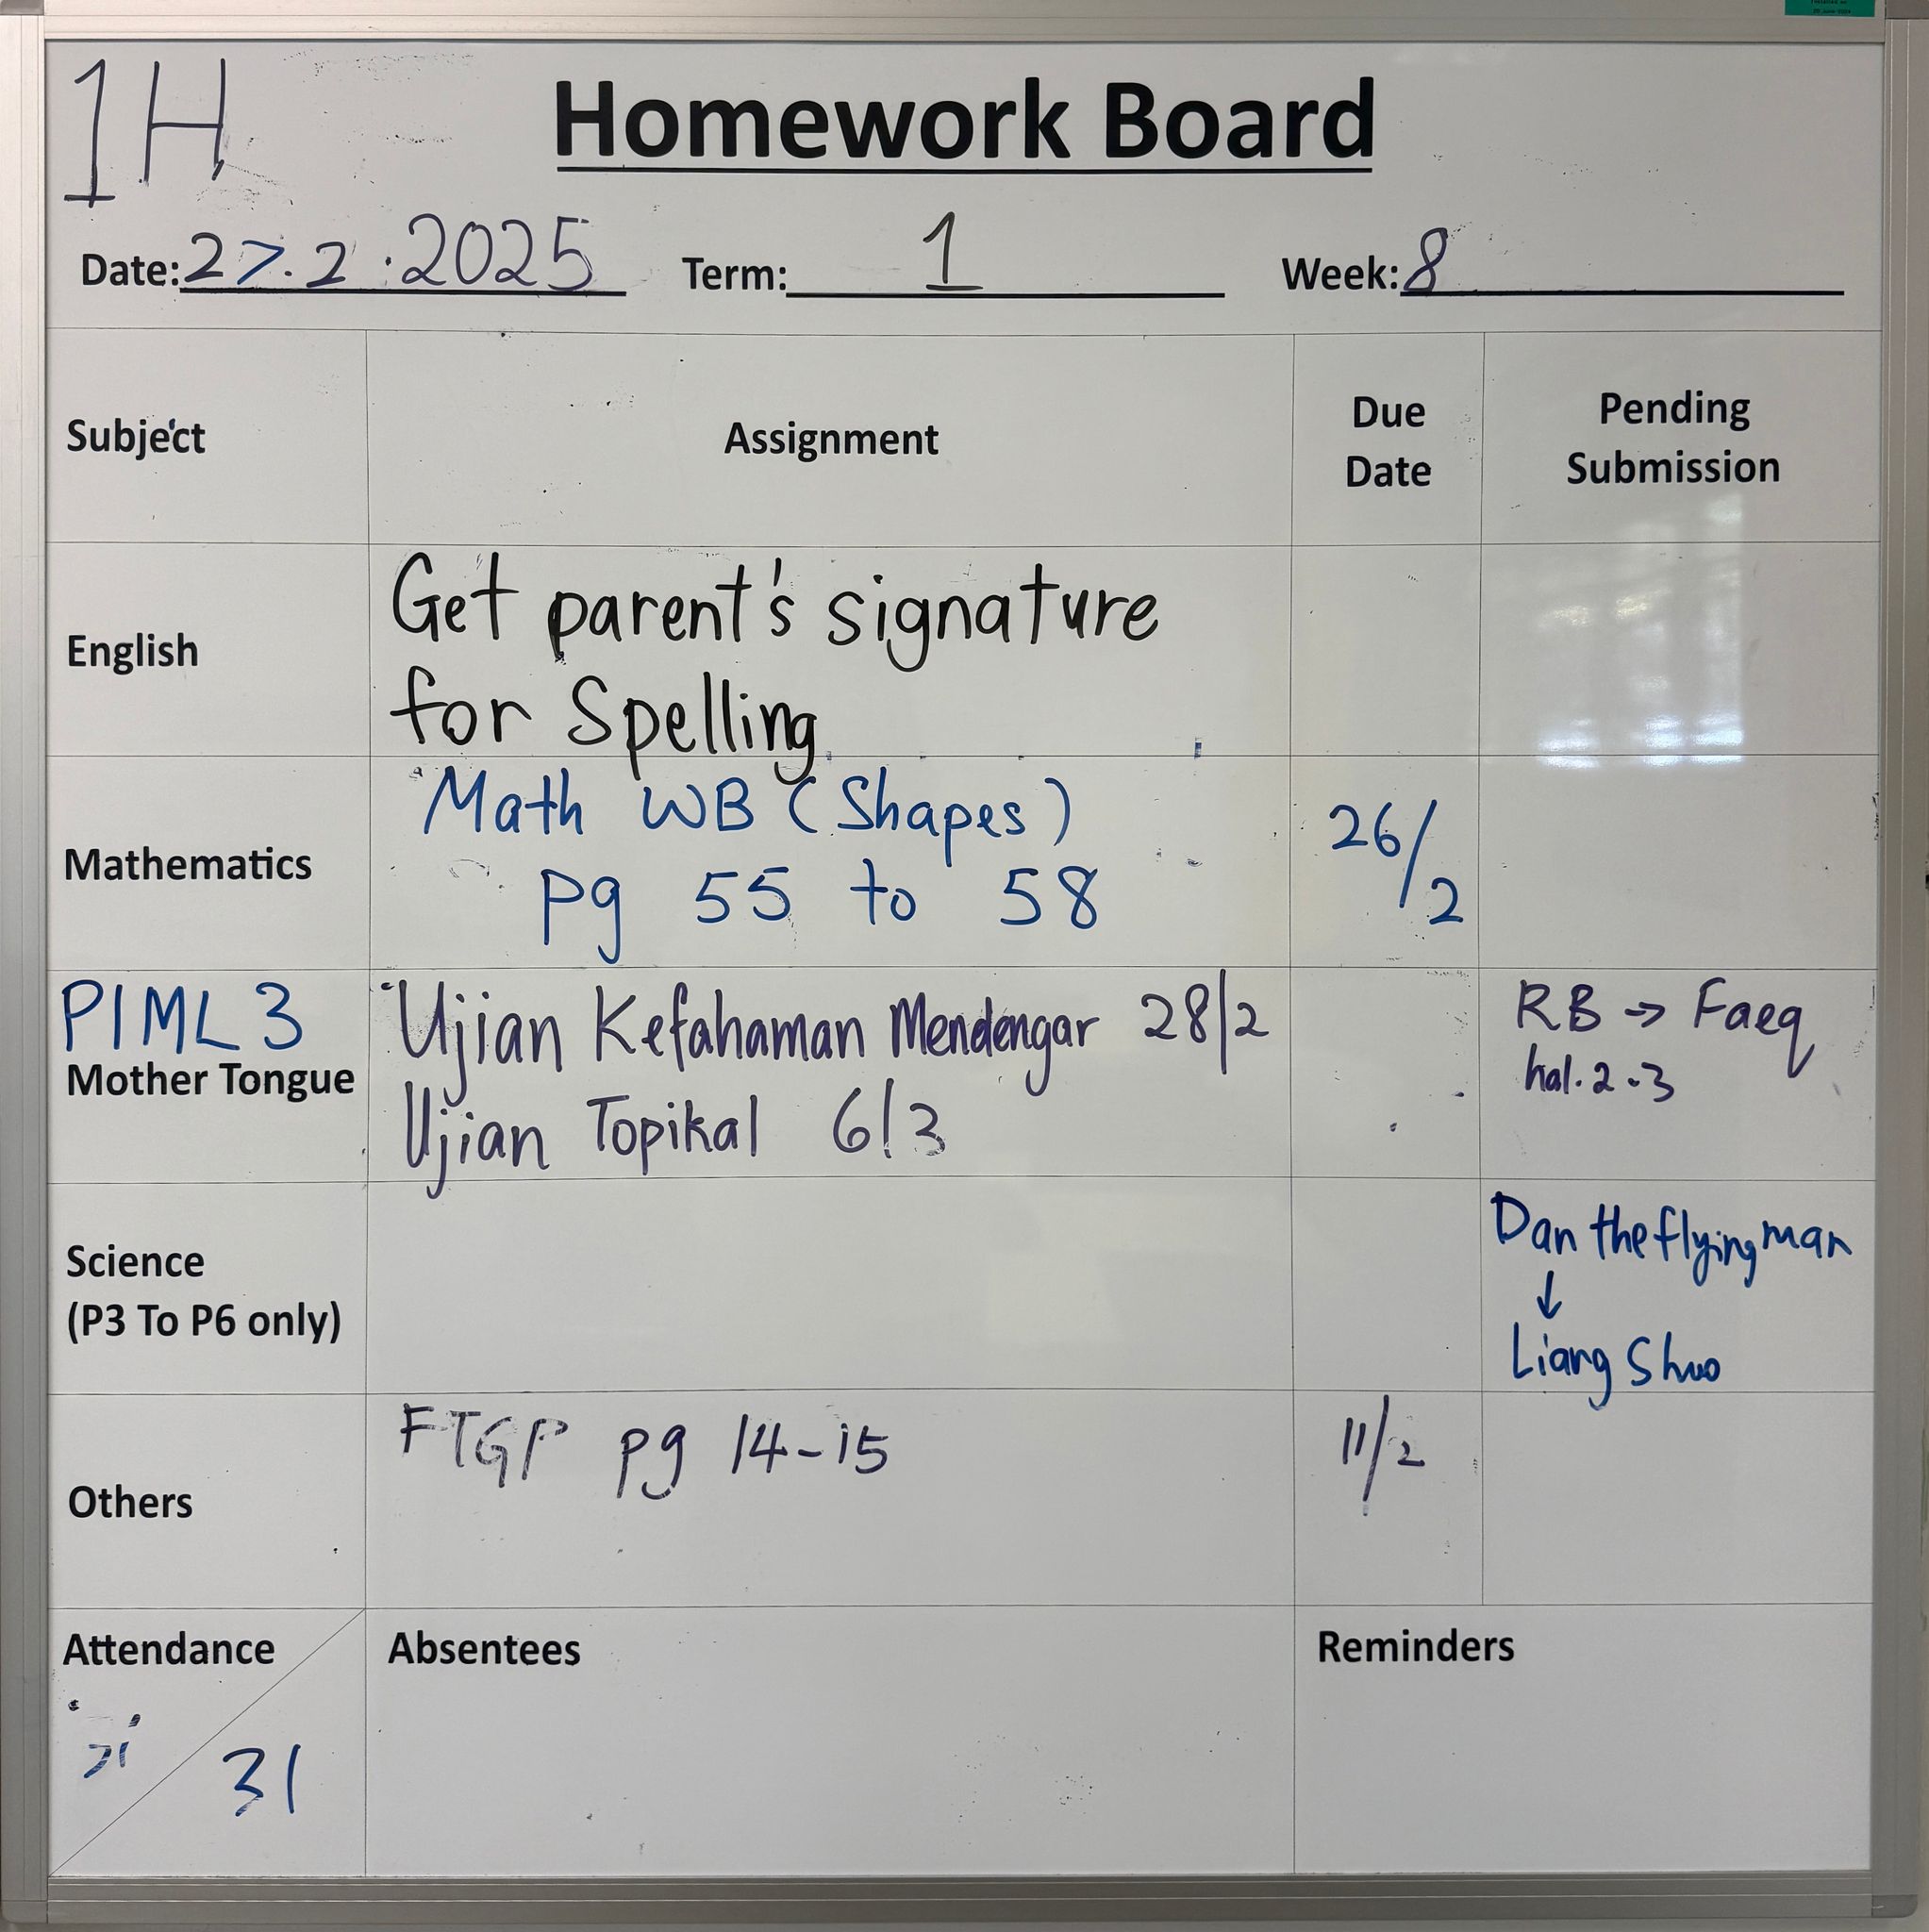 1H
Homework Board
Date: 27.2.2025 Term: 1 Week: 8
Subject Assignment Due Date Pending Submission
English Get parent's signature
for Spelling
Mathematics Math WB (Shapes) 26/2
pg 55 to 58
PIML 3 Ujian Kefahaman Mendengar 28/2 RB → Faeq
Mother Tongue hal. 2-3
Ujian Topikal 6/3
Science
(P3 To P6 only)
Dan the flying man
↓
Liang Shuo
Others FTGP pg 14-15 11/2
Attendance Absentees Reminders
31